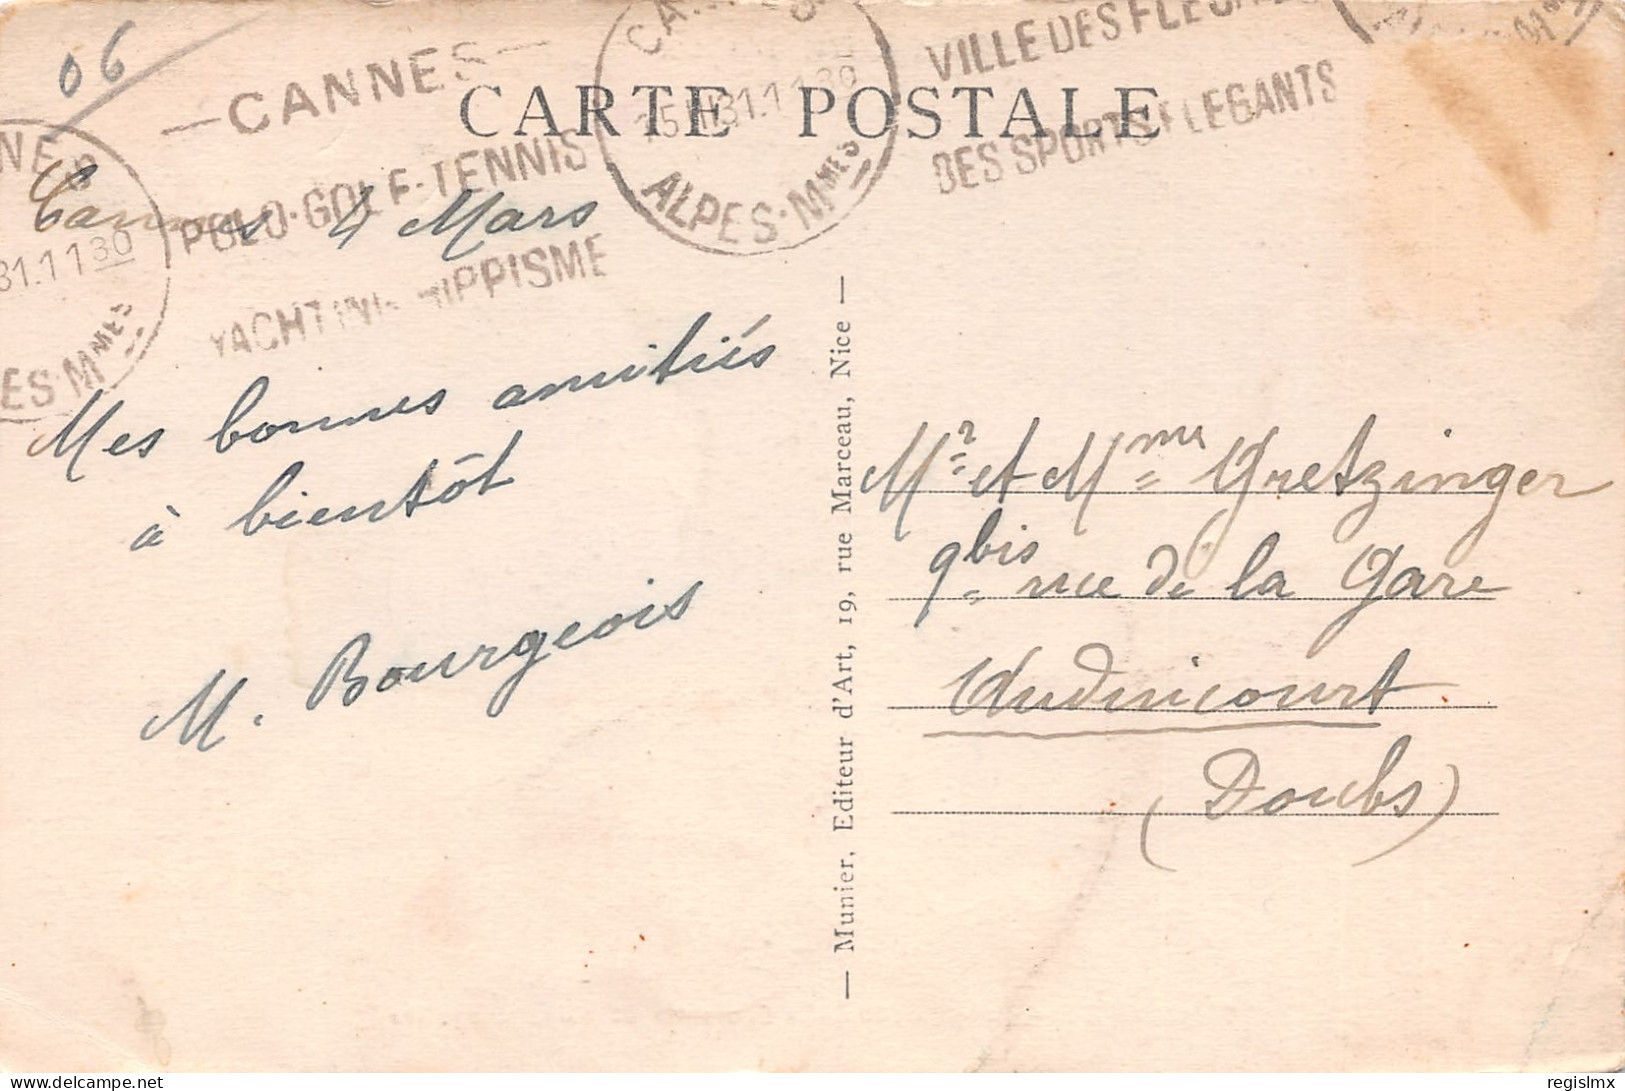 06
— CANNES —
POLO·GOLF·TENNIS
YACHTING HIPPISME
NES
31.11 30
ES·MMES
CA
25 III 31.11 30
ALPES·MMES
VILLE DES FLEURS
DES SPORTS ELEGANTS
CARTE POSTALE
Cannes 4 Mars
Mes bonnes amitiés
à bientôt
M. Bourgeois
— Munier, Editeur d'Art, 19, rue Marceau, Nice —
Mr et Mme Gretzinger
9bis rue de la Gare
Audincourt
(Doubs)
regislmx